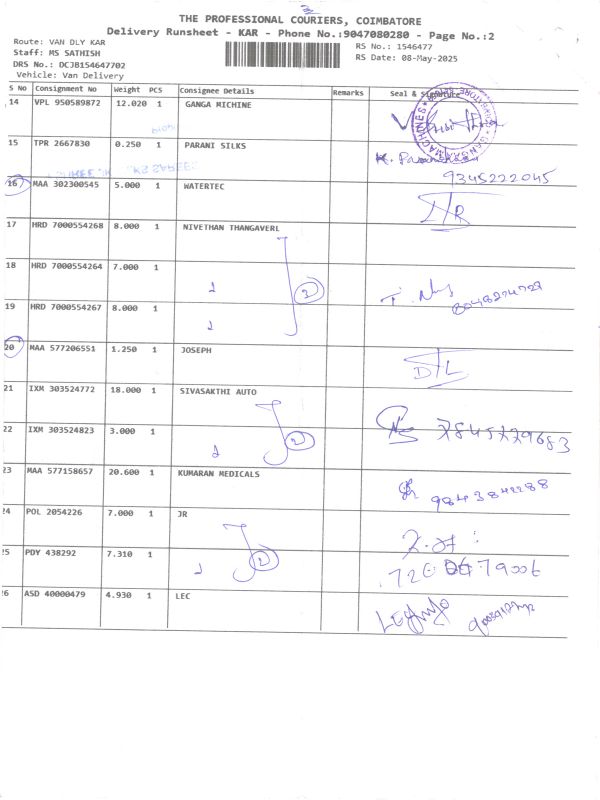 THE PROFESSIONAL COURIERS, COIMBATORE
Delivery Runsheet - KAR - Phone No.:9047080280 - Page No.:2
Route: VAN DLY KAR
RS No.: 1546477
Staff: MS SATHISH
RS Date: 08-May-2025
DRS No.: DCJB154647702
Vehicle: Van Delivery
S No Consignment No Weight PCS Consignee Details Remarks Seal & Signature
14 VPL 950589872 12.020 1 GANGA MICHINE
15 TPR 2667830 0.250 1 PARANI SILKS
9345222045
16 MAA 302300545 5.000 1 WATERTEC
17 HRD 7000554268 8.000 1 NIVETHAN THANGAVERL
18 HRD 7000554264 7.000 1
19 HRD 7000554267 8.000 1
20 MAA 577206551 1.250 1 JOSEPH
DTL
21 IXM 303524772 18.000 1 SIVASAKTHI AUTO
22 IXM 303524823 3.000 1
23 MAA 577158657 20.600 1 KUMARAN MEDICALS
24 POL 2054226 7.000 1 JR
25 PDY 438292 7.310 1
26 ASD 40000479 4.930 1 LEC